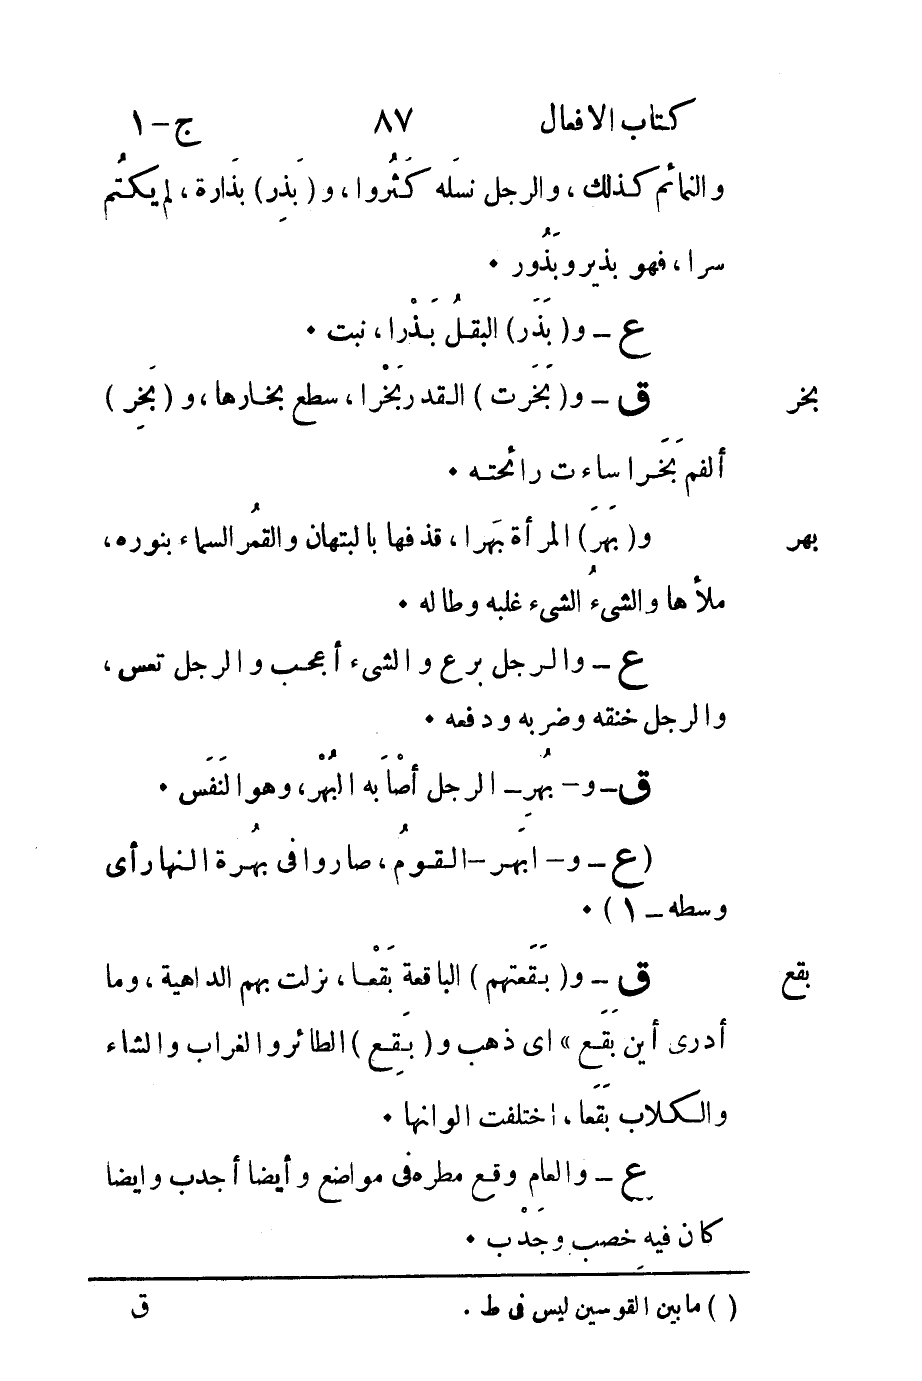 كتاب الافعال ٨٧ ج-١
والنمائم كذلك، والرجل نسلَه كَثُروا، و(بَذِر) بذَارة، لم يكتُم
سرا، فهو بذير وبَذُور •
ع – و(بَذَر) البقلُ بَذْرا، نبت •
بخر ق – و(بَخَرت) القدر بَخْرا، سطع بخارها، و(بَخِر)
ألفم بَخَرا ساءت رائحته •
بهر و(بَهَرَ) المرأة بَهرا، قذفها بالبتهان والقمُر السماء بنوره،
ملأها والشيءُ الشيء غلبه وطاله •
ع – والرجل برع والشيء أعجب والرجل تعس،
والرجل خنقه وضربه ودفعه •
ق – و– بُهِر – الرجل أصْابَه البُهْر، وهو النَفَس •
(ع – و– ابهَر – القومُ، صاروا فى بهُرة النهار أى
وسطه – ١) •
بقع ق – و(بَقَعتهم) الباقعة بَقْعا، نزلت بهم الداهية، وما
أدرى أين بَقَع» اى ذهب و(بَقِع) الطائر والغراب والشاء
والكلاب بَقَعا، اختلفت الوانها •
ع – والعام وقع مطره فى مواضع وأيضا أجدب وايضا
كان فيه خِصب وجَدْب •
( ) مابين القوسين ليس فى ط . ق